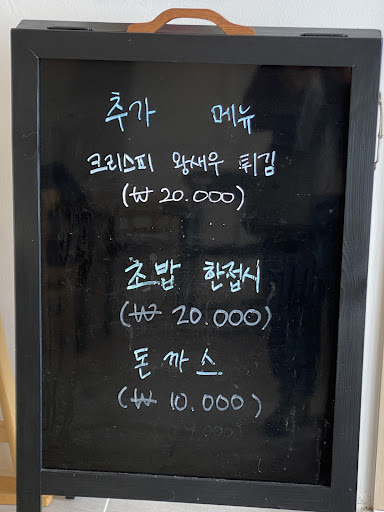 추가 메뉴
크리스피 왕새우 튀김
(₩ 20.000)
초밥 한접시
(₩ 20.000)
돈까스
(₩ 10.000)